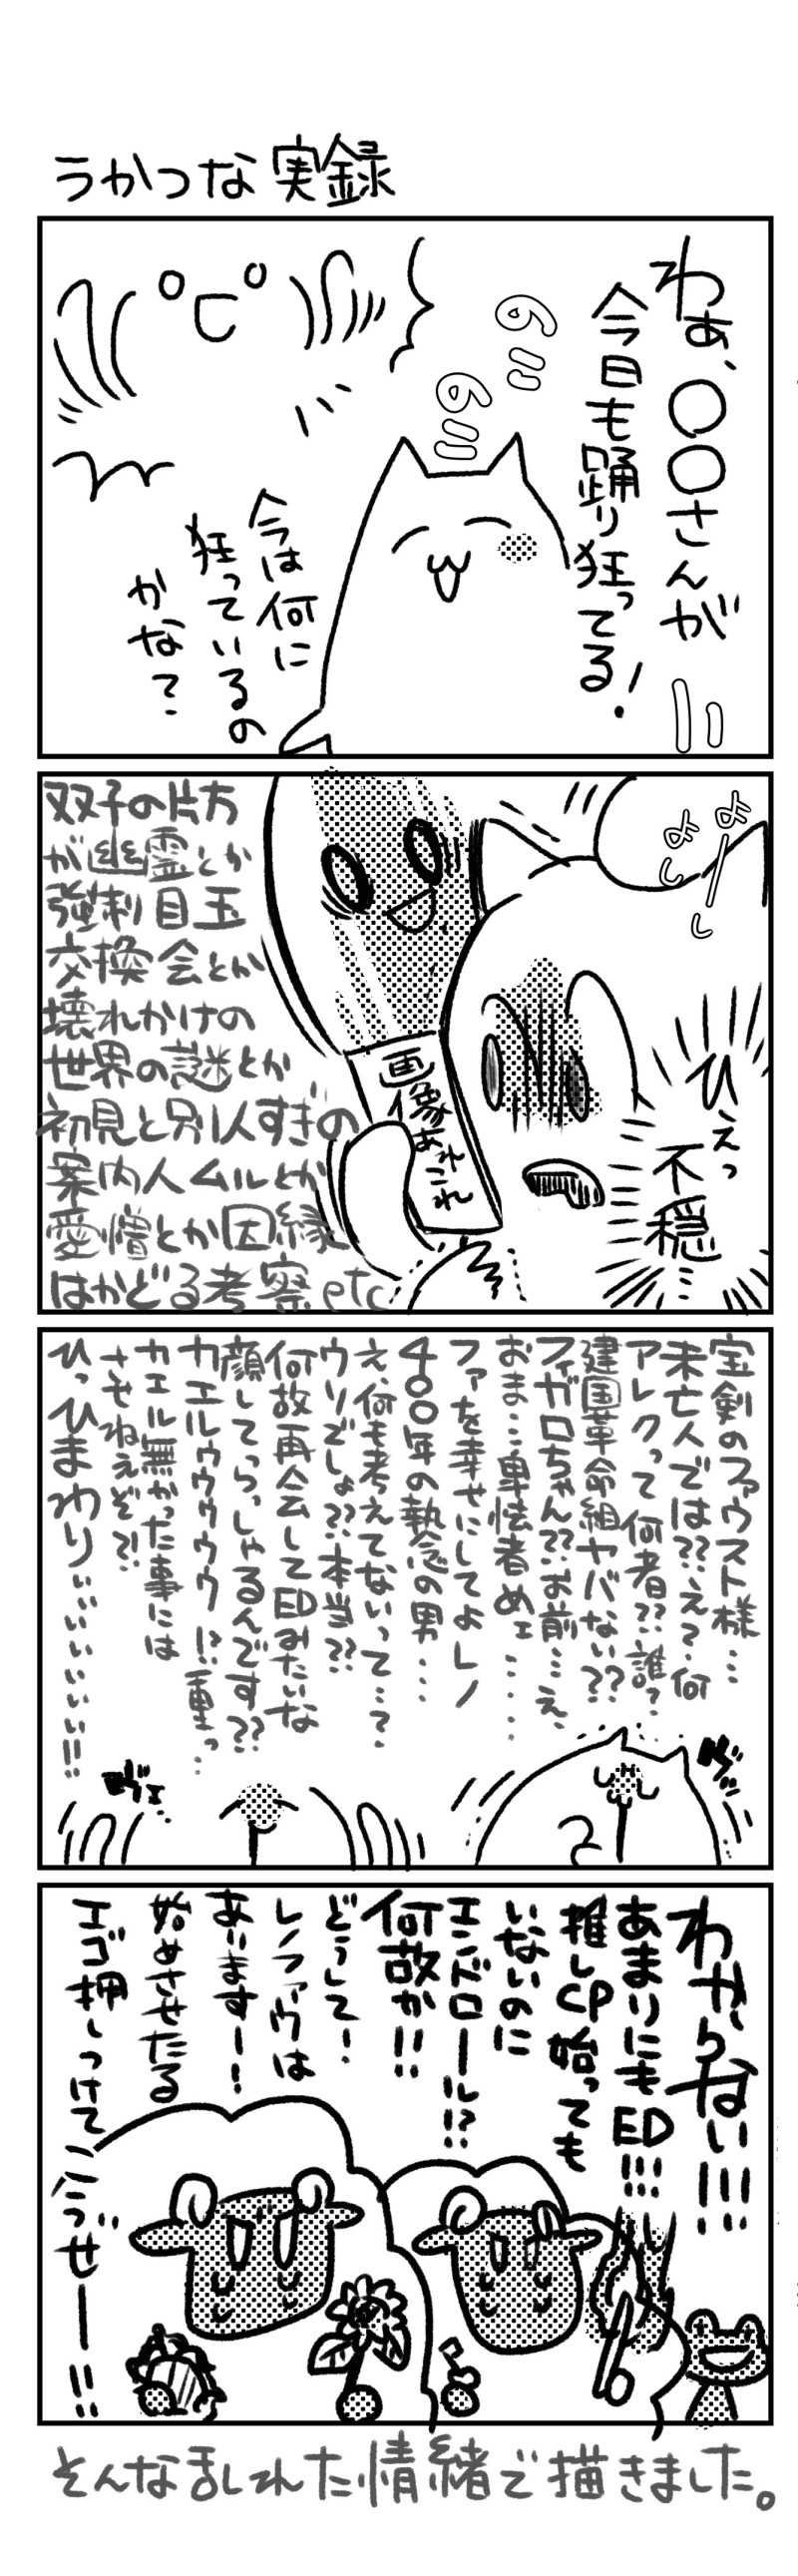 うかつな実録
わぁ、〇〇さんが
今日も踊り狂ってる!
今は何に
狂っているの
かな?
よーし
よし
双子の片方
が幽霊とか
強制目玉
交換会とか
壊れかけの
世界の謎とか
初見と別人すぎの
案内人ムルとか
愛憎とか因縁
はかどる考察etc
画像あれこれ
ひぇっ
不穏…
宝剣のファウスト様…
未亡人では??え?何
アレクって何者??誰?
建国革命組ヤバない??
フィガロちゃん??お前…え、
おま…卑怯者めェ....
ファを幸せにしてよレノ
400年の執念の男…
え、何も考えてないって…?
ウソでしょ??本当??
何故再会してEDみたいな
顔してらっしゃるんです??
カエルゥゥゥゥウ!?重っ..
カエル無かった事には
させねえぞ?!
ひっひまわりぃぃぃぃぃぃ!!
ヴッ
ヴェ…
わからない!!!
あまりにもED!!!
推しCP始っても
いないのに
エンドロール!?
何故か!!
どうして!
レノファウは
あります─!
始めさせたる
エゴ押しつけて
こうぜー!!
そんな乱れた情緒で描きました。